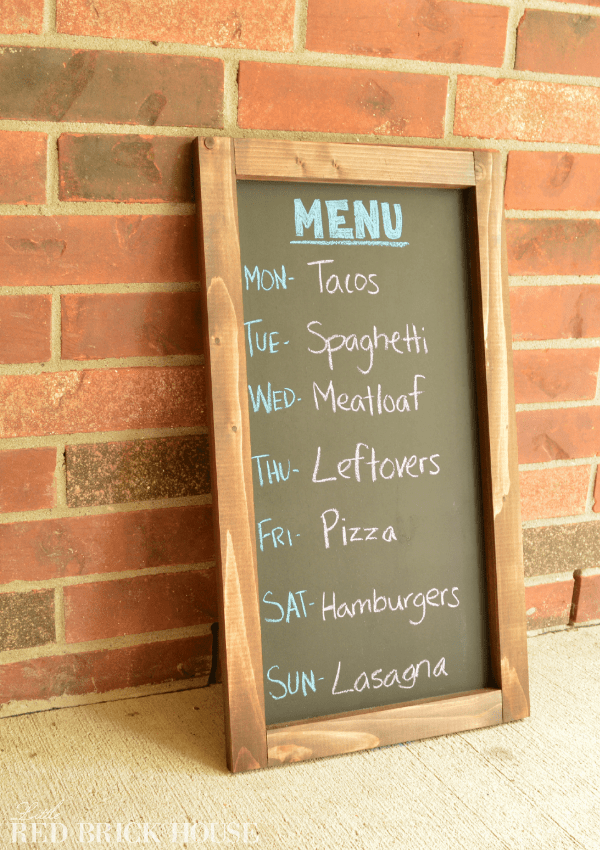 MENU
MON- Tacos
TUE- Spaghetti
WED- Meatloaf
THU- Leftovers
FRI- Pizza
SAT- Hamburgers
SUN- Lasagna
Little
RED BRICK HOUSE